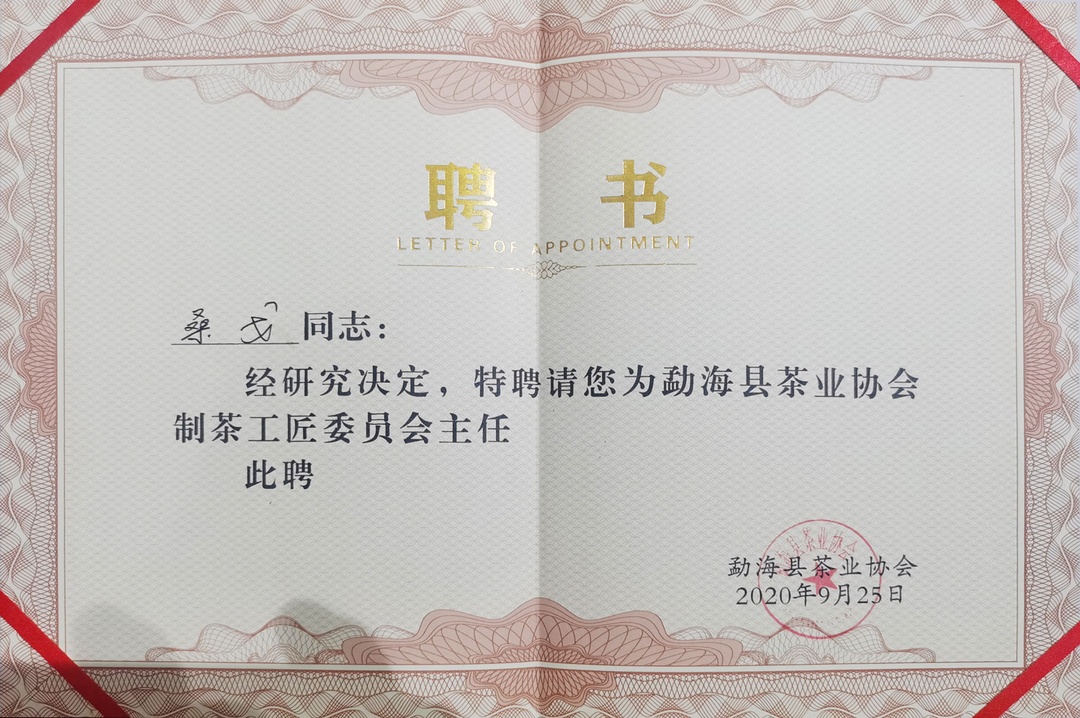 聘 书
LETTER OF APPOINTMENT
桑 戈 同志：
经研究决定，特聘请您为勐海县茶业协会
制茶工匠委员会主任
此聘
勐海县茶业协会
2020年9月25日